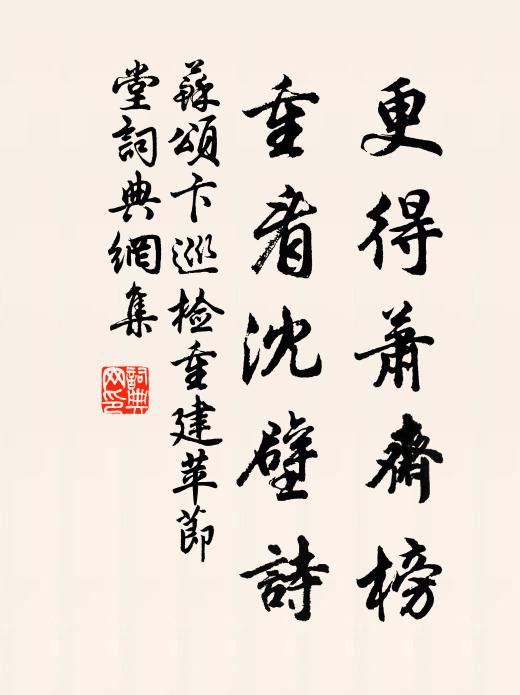 更得蕭齋榜
重看沈壁詩
蘇頌卞巡檢重建苹節
堂詞典網集
詞典
网印